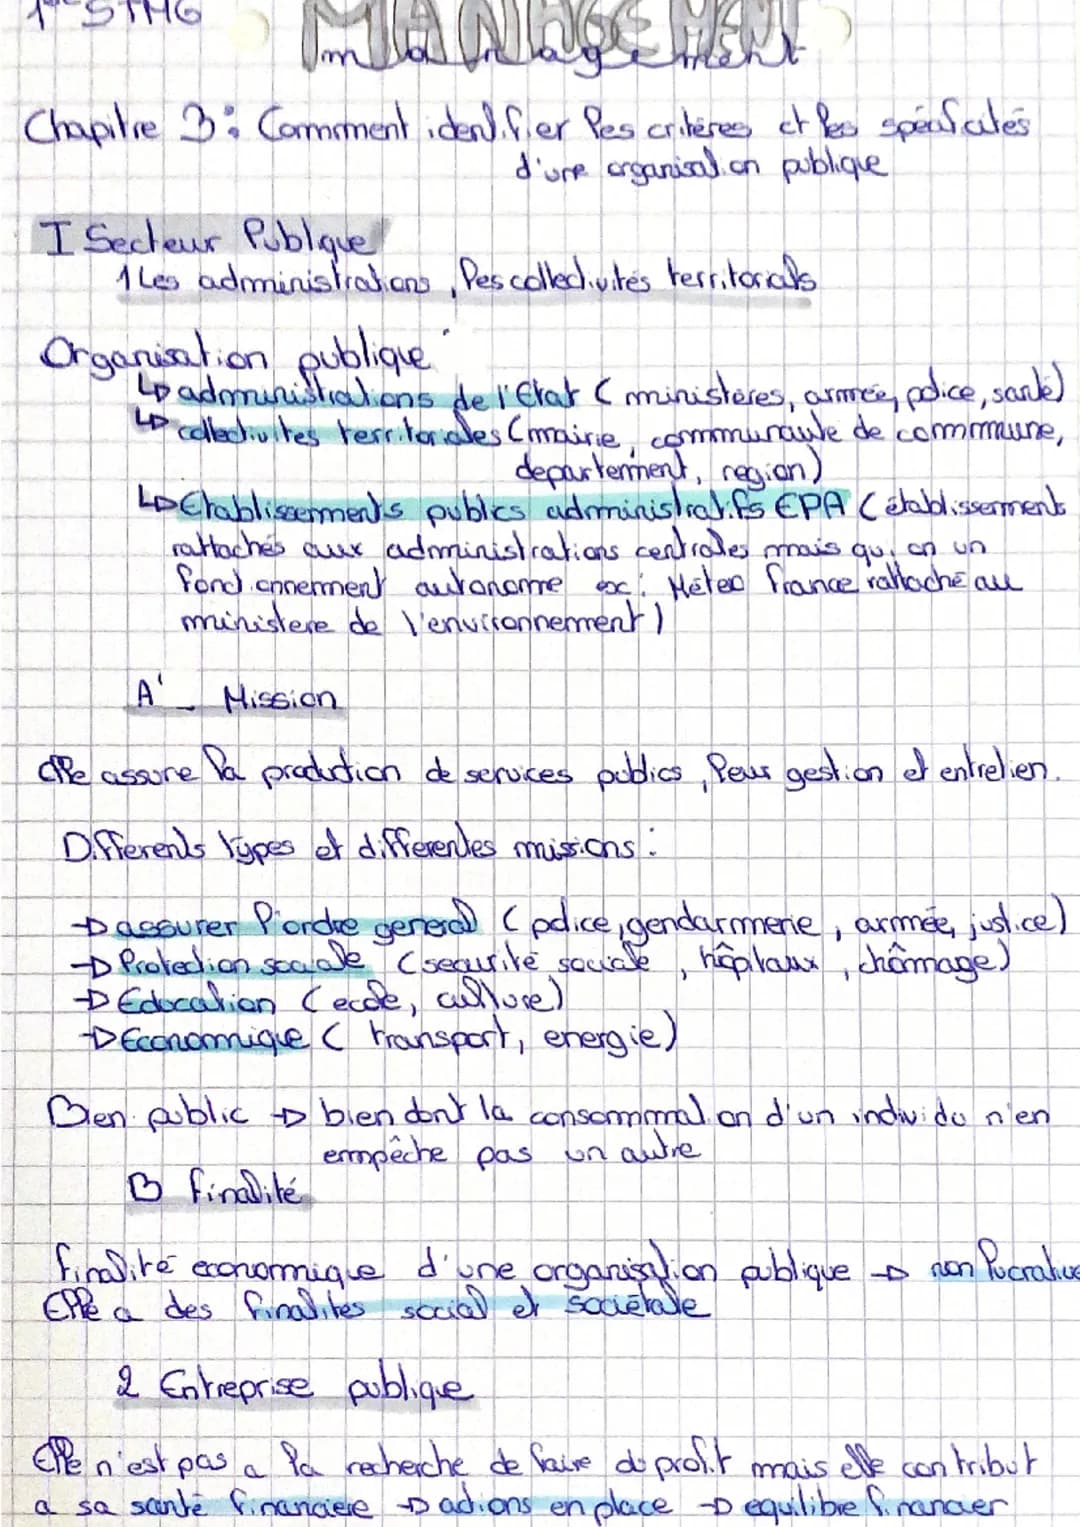 1re STMG
MANAGEMENT
management
Chapitre 3 : Comment identifier les critères et les spécificités
d'une organisation publique
I Secteur Publique
1 Les administrations, les collectivités territorials
Organisation publique
↳ administrations de l'Etat ( ministères, armée, police, santé)
↳ collectivites territoriales (mairie, communauté de commmune,
departement, region)
↳ Etablissements publics administratifs EPA ( établissements
rattachés aux administrations centrales mais qui on un
fonctionnement autonome ex : Méteo france rattaché au
ministere de l'environnement )
A' _ Mission
elle assure la production de services publics, leurs gestion et entretien.
Differents types et differentes missions :
→ assurer l'ordre general ( police, gendarmerie, armée, justice)
→ Protection sociale (securité sociale, hôpitaux, chômage)
→ Education ( ecole, culture)
→ Economique ( transport, energie)
Bien public → bien dont la consommation d'un individu n'en
empêche pas un autre
B finalité
finalité economique d'une organisation publique → non lucrative
Elle a des finalités social et sociétale
2 Entreprise publique
Elle n'est pas a la recherche de faire du profit mais elle contribut
a sa santé financiere → actions en place → equilibre financier